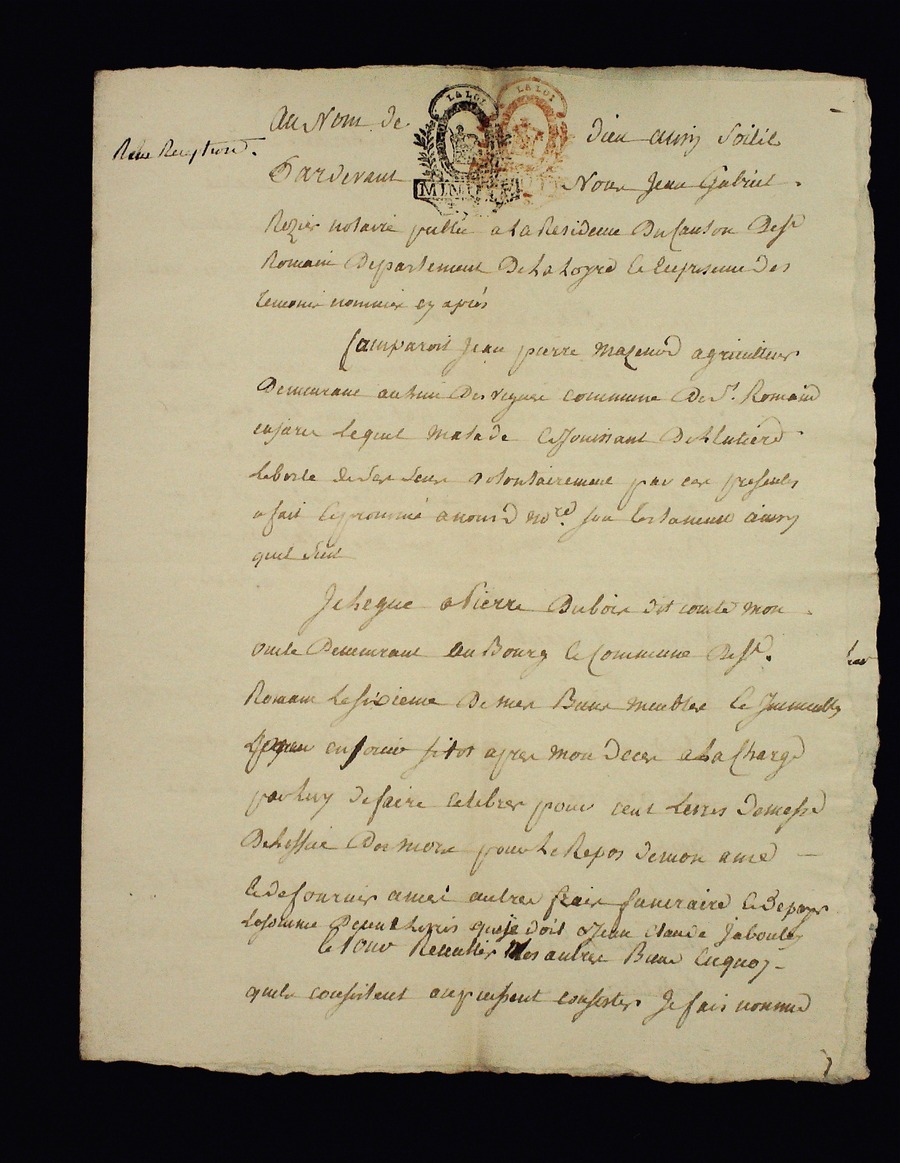 LA LOI LA LOI
au Nom de Dieu ainsy soitil
Pardevant Nous Jean Gabriel
MINUTE
Rozier notaire public a la Residence Du Canton De st
Romain Departement De la Loyre Et En presence des
temoins nommés cy après
Comparoit Jean pierre Mazenod agriculteur
Demeurant au lieu Des vignes commune De St. Romain
en jarez lequel malade Et Jouissant De l'Entiere
liberté de ses sens volontairement par ces presentes
a fait Et prononcé a nous d. nore. son testament ainsy
quil suit
Je legue a Pierre Dubois dit comte mon
oncle Demeurant au Bourg Et Commune De st.
Romain le sixieme De mes Biens meubles Et Immeubles
en jouir sitot apres mon deces a la Charge
par luy de faire celebrer pour cent livres de messe
De l'office Des morts pour le Repos de mon ame
Et de fournir a mes autres frais funeraire Et De payer
la somme De cent livres que je doit a Jean Claude Jaboulay
Et tout Mes autres Biens En quoy
quils consistent ou puissent consister Je fais nomme